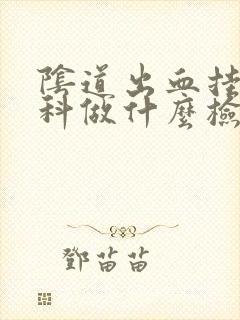 陰道出血挂
科做什麼檢
鄧苗苗